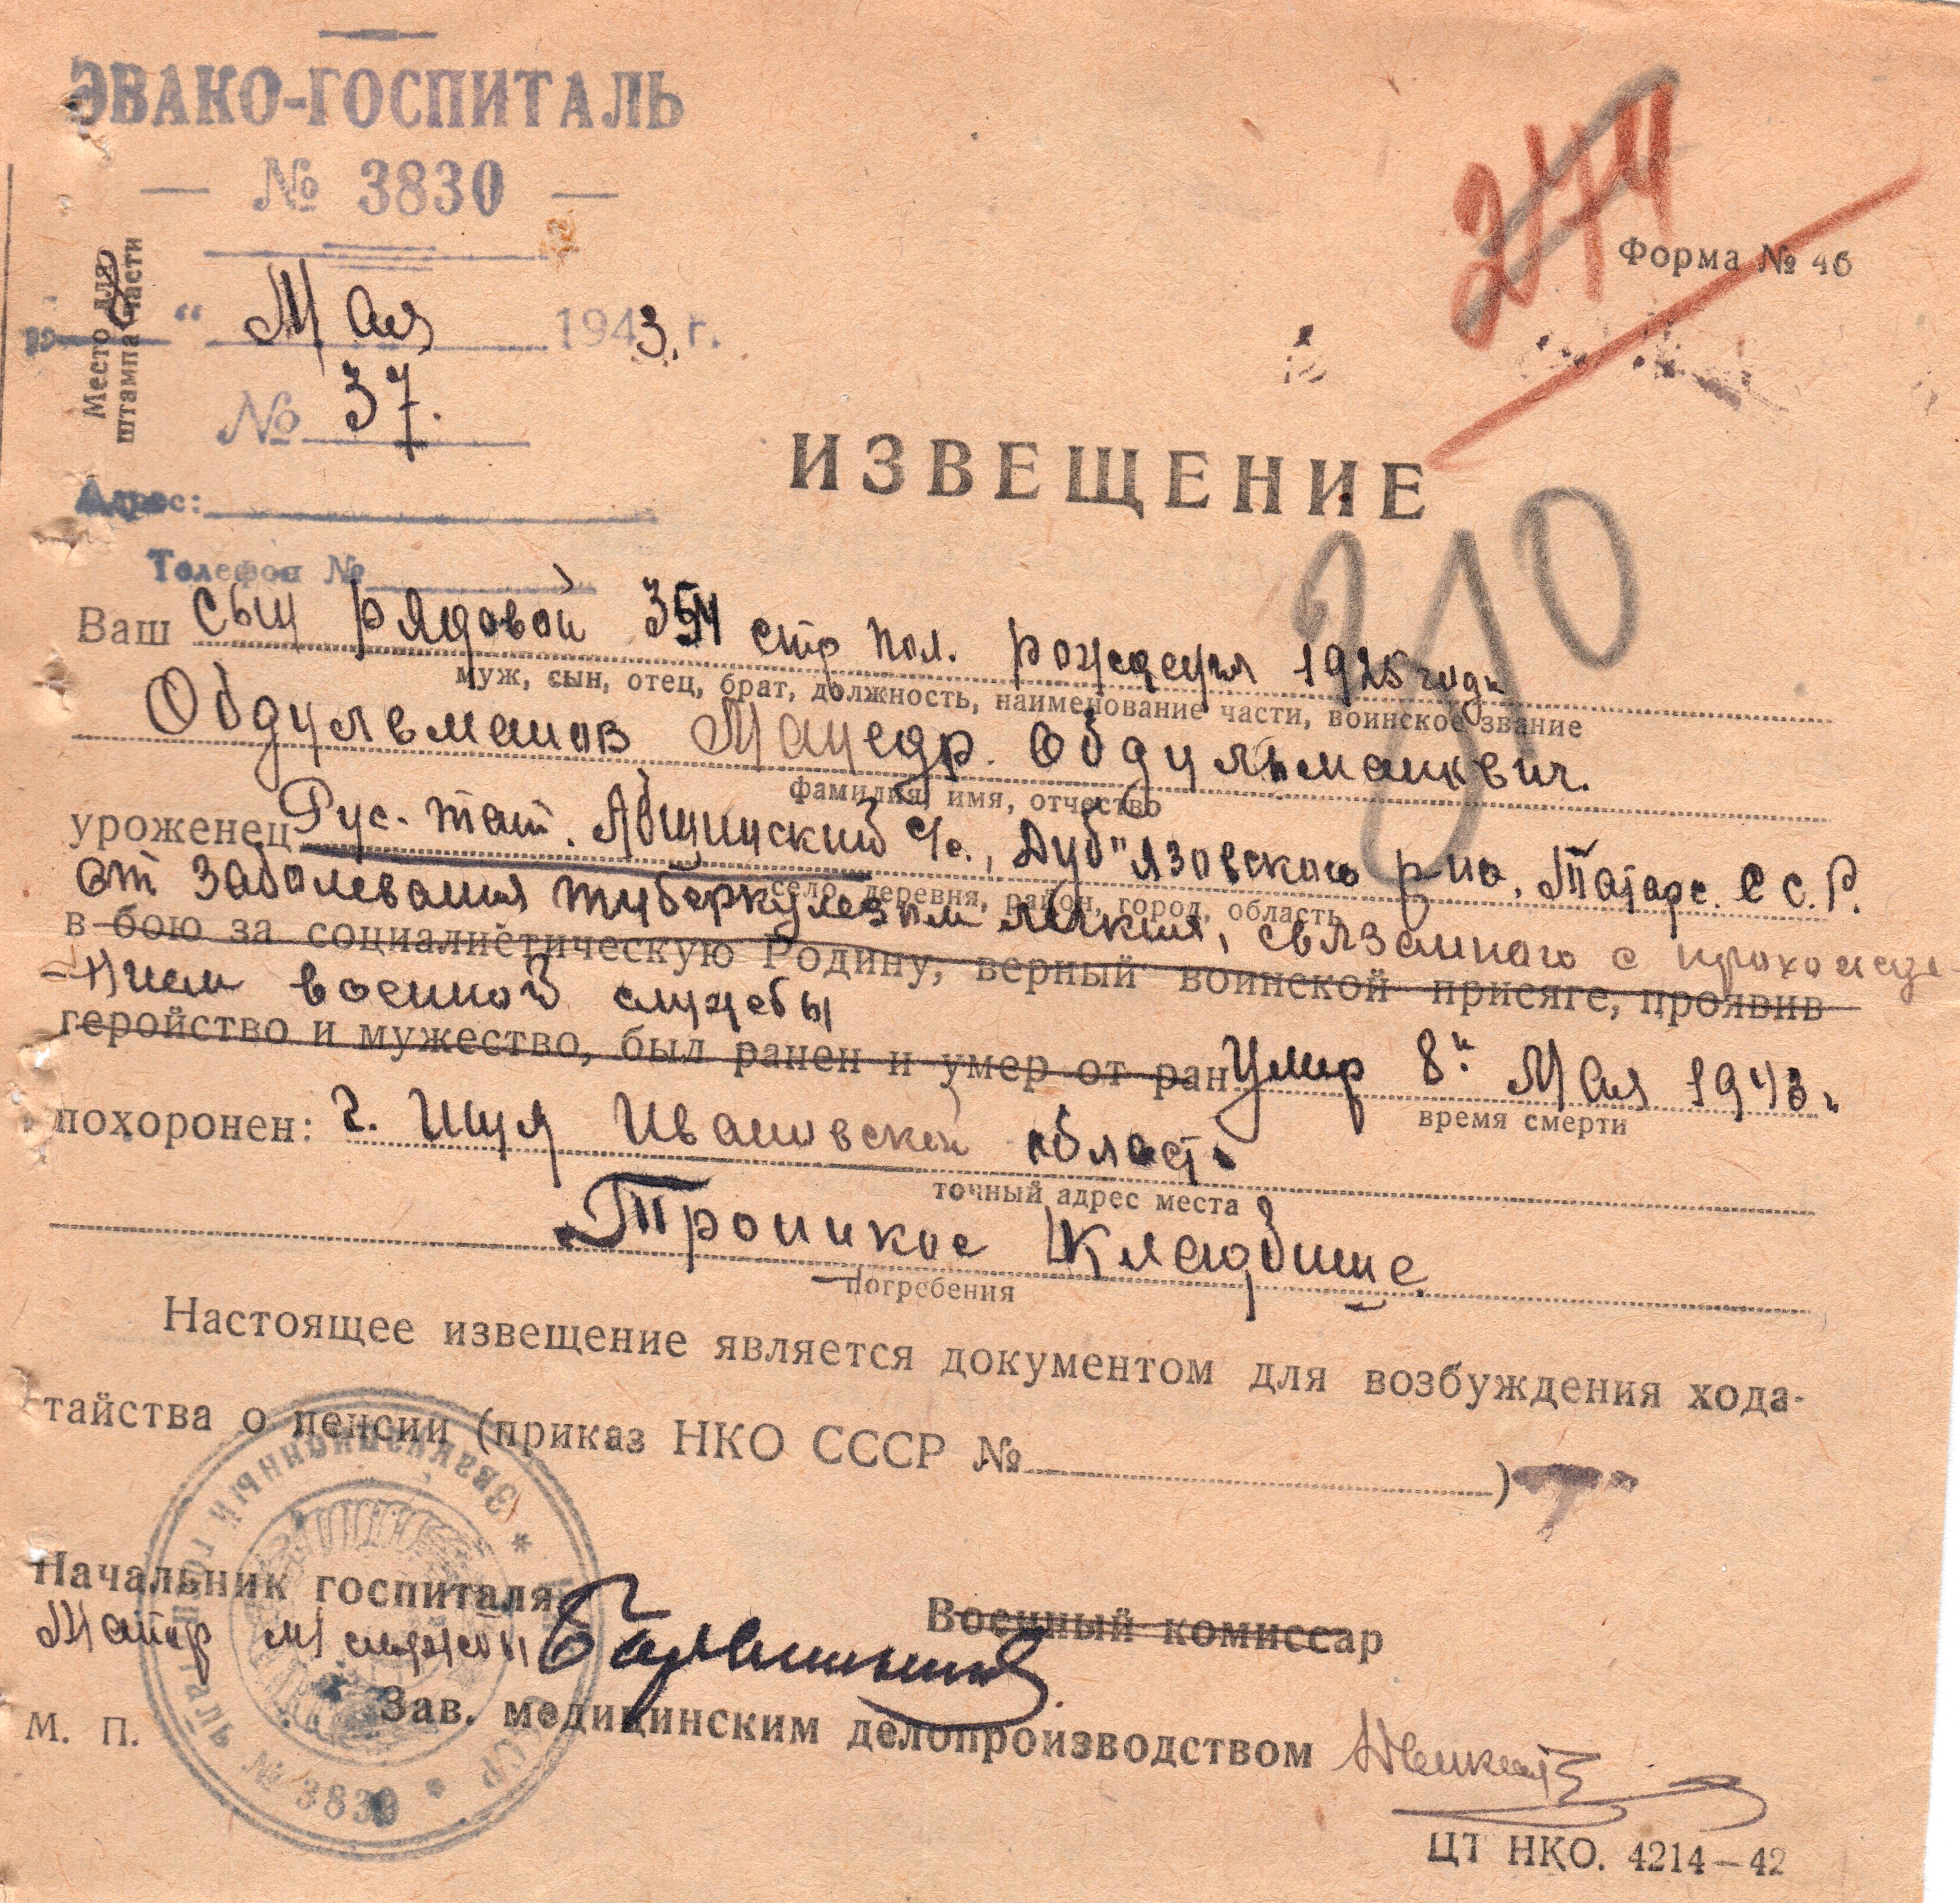 ЭВАКО-ГОСПИТАЛЬ
— № 3830 —
Место для штампа части
" Мая 1943 г.
№ 37.
Адрес:
Телефон №
274
Форма № 46
ИЗВЕЩЕНИЕ
310
Ваш сын рядовой 354 стр пол. рождения 1925 года
муж, сын, отец, брат, должность, наименование части, воинское звание
Обдульманов Обдульманкович.
фамилия, имя, отчество
уроженец Рус-тат. с/с., Дуб"язовского р-на, Татарс. С С. Р.
село, деревня, район, город, область
от заболевания туберкулезом легких, связанного с прохожде
в бою за социалистическую Родину, верный воинской присяге, проявив
-нием военной службы
геройство и мужество, был ранен и умер от ран умер 8" Мая 1943 г.
время смерти
похоронен: г. Шуя Ивановской област.
точный адрес места
Троицкое Кладбище
погребения
Настоящее извещение является документом для возбуждения хода-
тайства о пенсии (приказ НКО СССР № )
Начальник госпиталя
Военный комиссар
Майор м/службы
Зав. медицинским делопроизводством
М. П.
Эвакуационный госпиталь № 3830 * СССР *
ЦТ НКО. 4214—42